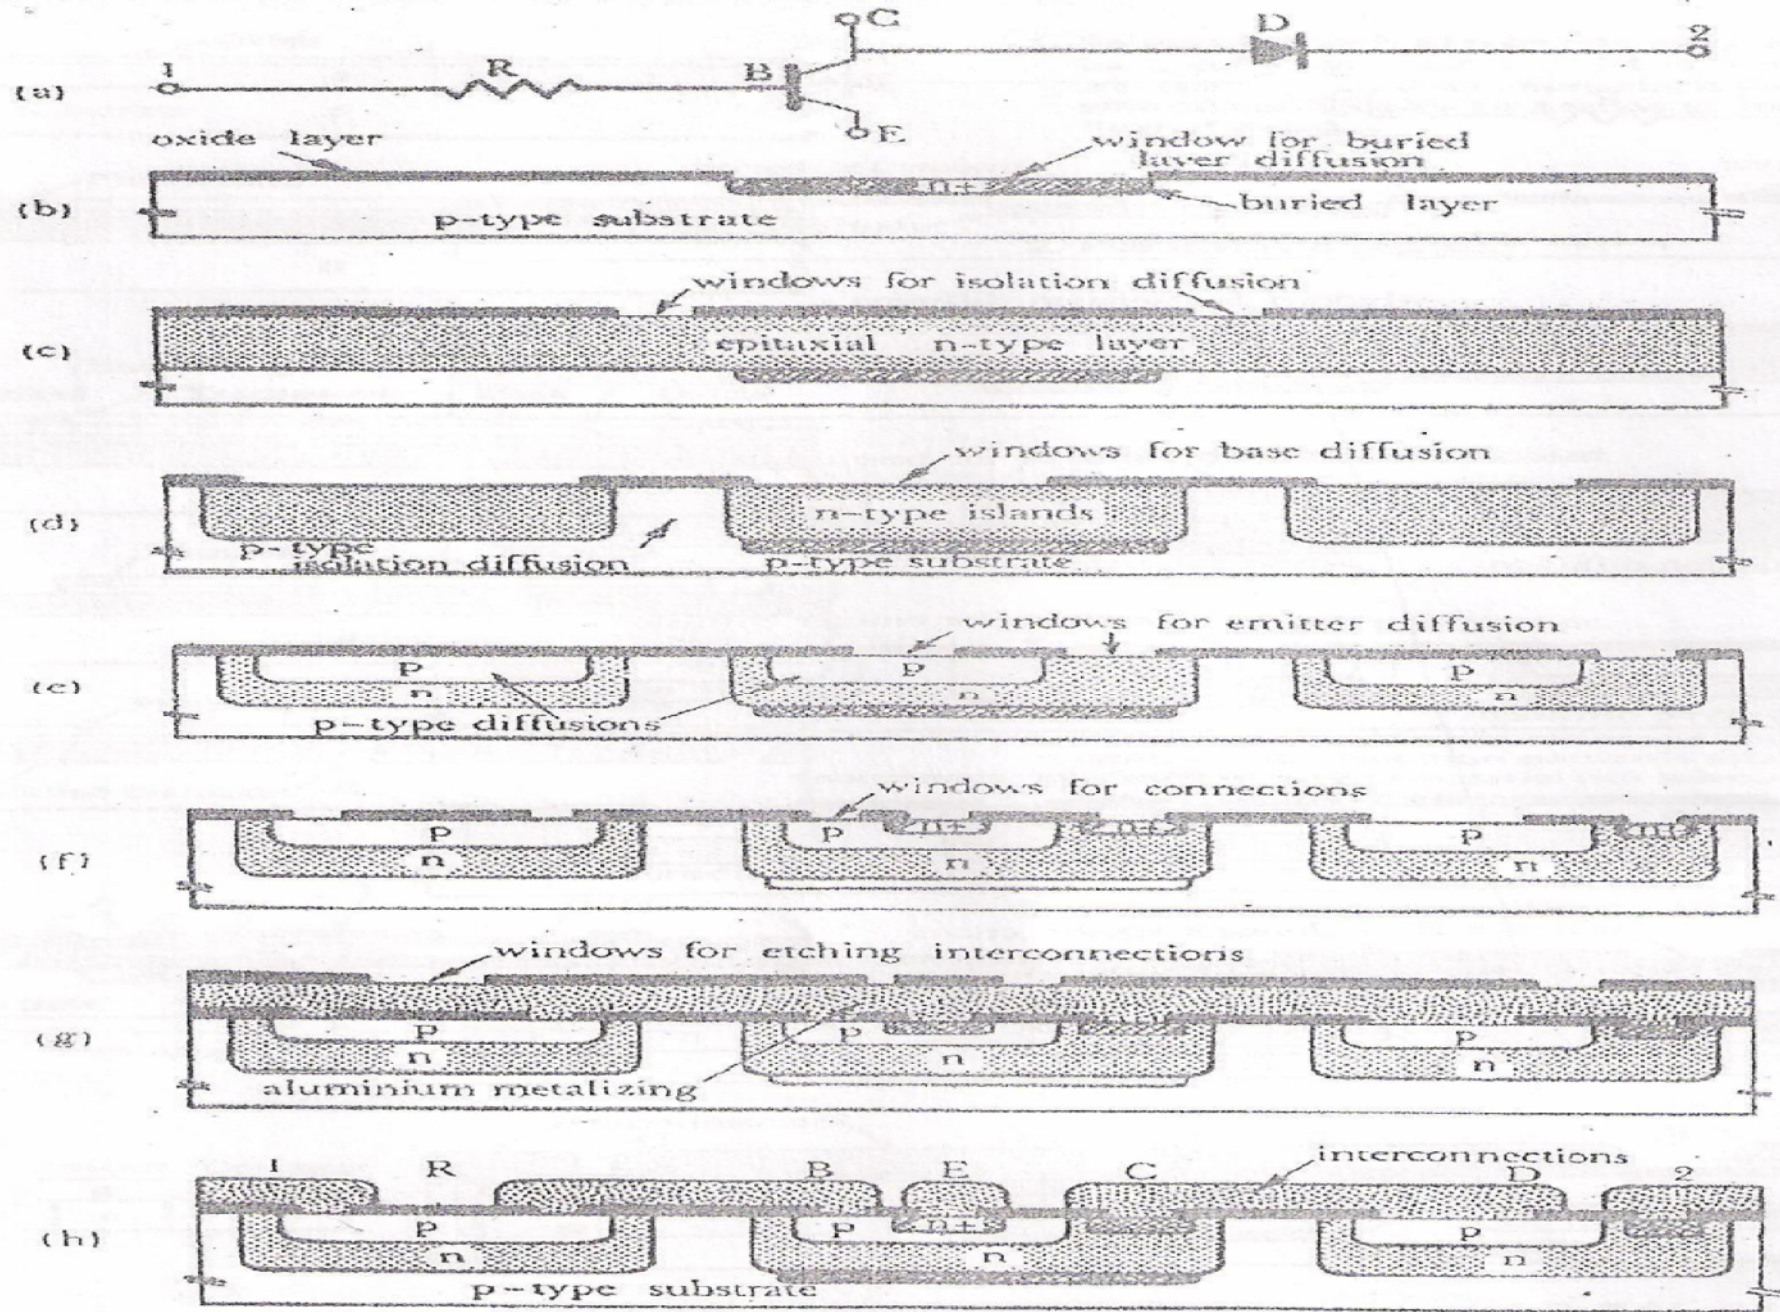 C
D
2
1
R
B
(a)
E
oxide layer
window for buried
layer diffusion
n+
(b)
buried layer
p-type substrate
windows for isolation diffusion
(c)
epitaxial n-type layer
windows for base diffusion
(d)
n-type islands
p-type
isolation diffusion
p-type substrate
windows for emitter diffusion
p p p
(e)
n n n
p-type diffusions
windows for connections
p p n+ n+ p n+
(f)
n n n
windows for etching interconnections
p p p
(g)
n n n
aluminium metalizing
interconnections
1 R B E C D 2
p p n+ p
(h)
n n n
p-type substrate